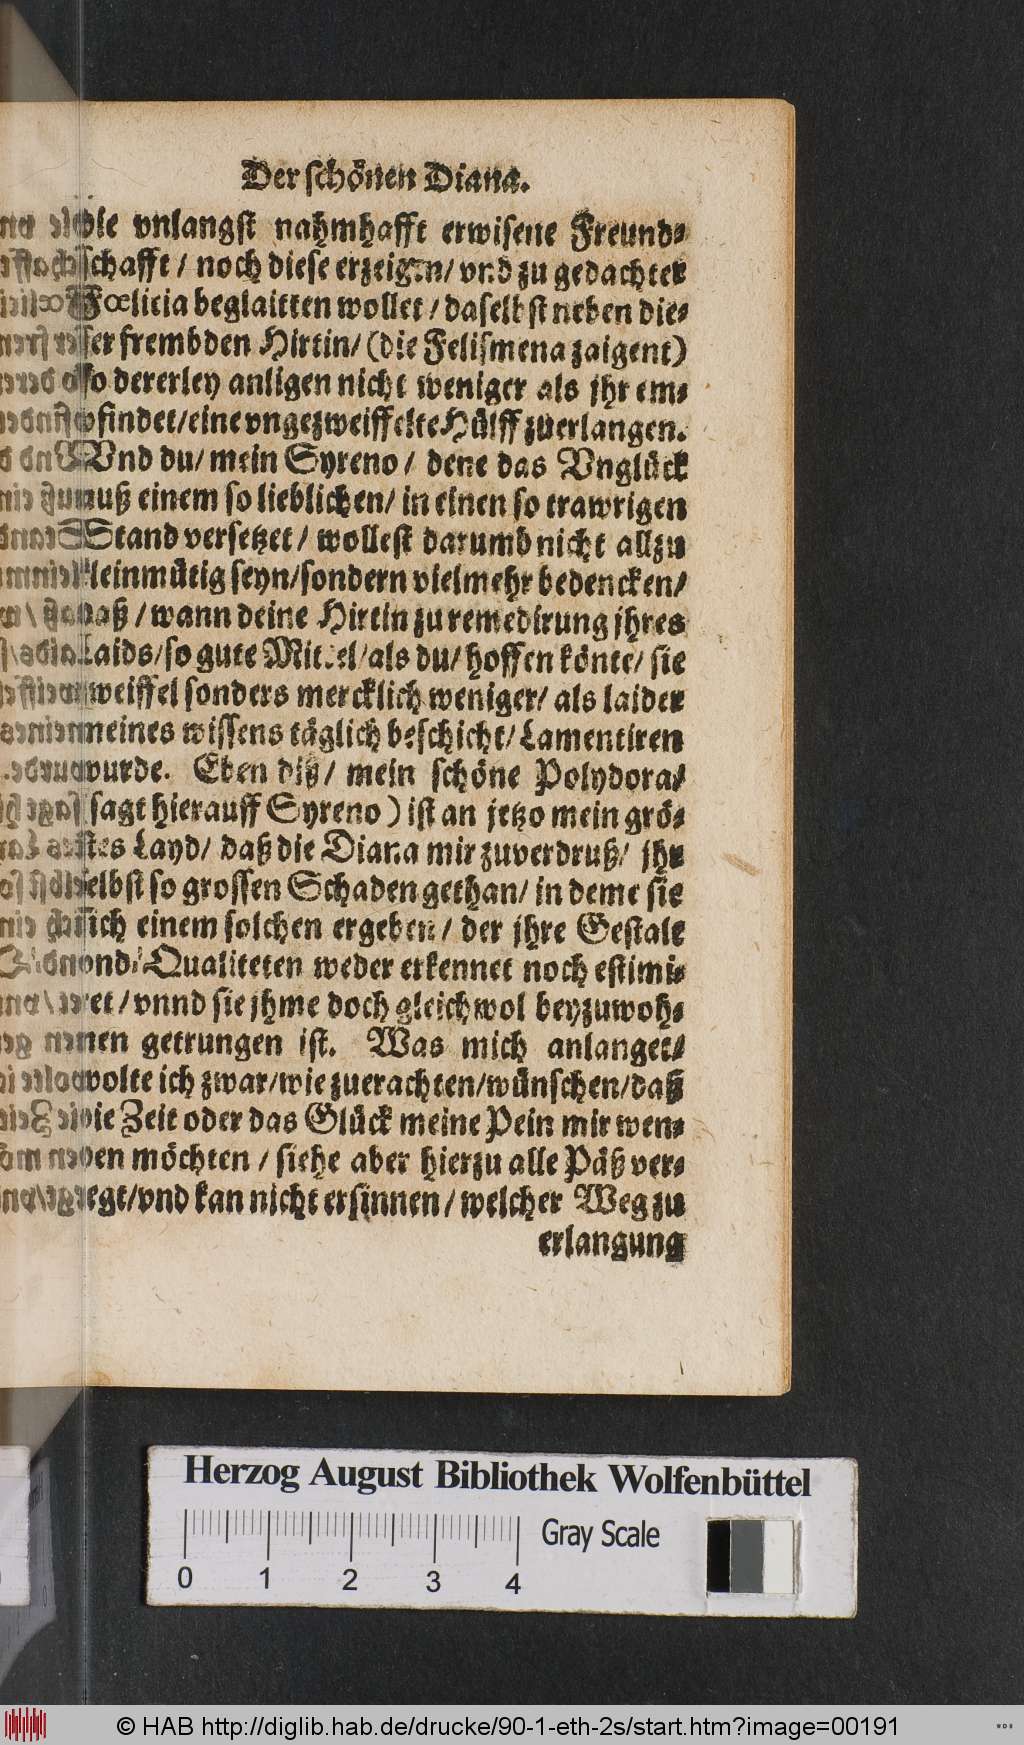 Der schönen Diana.
vnlangst nahmhafft erwisene Freund-
schafft / noch diese erzeigen / vnd zu gedachter
Fœlicia beglaitten wollet / daselbst neben die-
ser frembden Hirtin / (die Felismena zaigent)
so dererley anligen nicht weniger als jhr em-
pfindet / eine vngezweiffelte Hülff zuerlangen.
Vnd du / mein Syreno / dene das Vnglück
auß einem so lieblichen / in einen so trawrigen
Stand versetzet / wollest darumb nicht allzu
kleinmütig seyn / sondern vielmehr bedencken /
daß / wann deine Hirtin zu remedirung jhres
Laids / so gute Mittel / als du / hoffen könte / sie
zweiffel sonders mercklich weniger / als laider
meines wissens täglich beschicht / Lamentiren
wurde. Eben diß / mein schöne Polydora /
(sagt hierauff Syreno) ist an jetzo mein grö-
stes Layd / daß die Diana mir zuverdruß / jhr
selbst so grossen Schaden gethan / in deme sie
sich einem solchen ergeben / der jhre Gestalt
vnd Qualiteten weder erkennet noch estimi-
ret / vnnd sie jhme doch gleichwol beyzuwoh-
nen getrungen ist. Was mich anlanget /
wolte ich zwar / wie zuerachten / wünschen / daß
die Zeit oder das Glück meine Pein mir wen-
den möchten / siehe aber hierzu alle Päß ver-
legt / vnd kan nicht ersinnen / welcher Weg zu
erlangung
Herzog August Bibliothek Wolfenbüttel
0 1 2 3 4 Gray Scale
© HAB http://diglib.hab.de/drucke/90-1-eth-2s/start.htm?image=00191